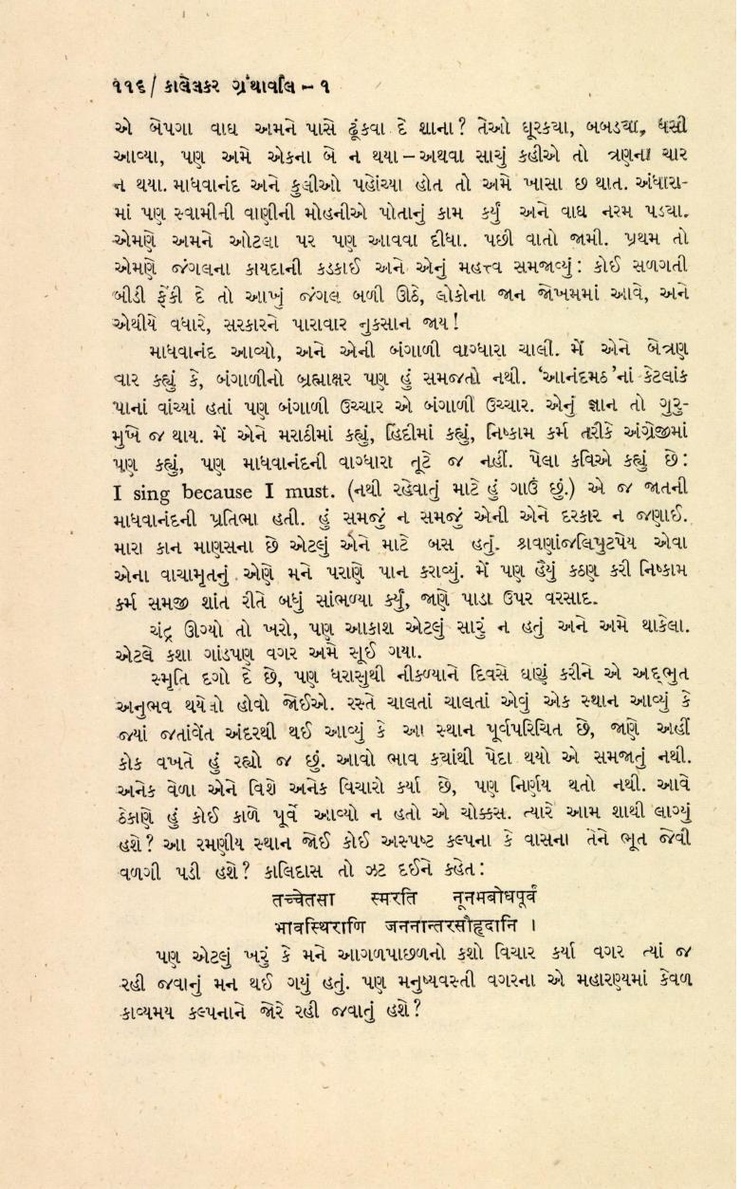 ૧૧૬/ કાલેલકર ગ્રંથાવલિ – ૧
એ બેપગા વાઘ અમને પાસે ઢૂંકવા દે શાના? તેઓ ઘૂરકયા, બબડ્યા, ધસી
આવ્યા, પણ અમે એકના બે ન થયા – અથવા સાચું કહીએ તો ત્રણના ચાર
ન થયા. માધવાનંદ અને કુલીઓ પહોંચ્યા હોત તો અમે ખાસા છ થાત. અંધારા-
માં પણ સ્વામીની વાણીની મોહનીએ પોતાનું કામ કર્યું અને વાઘ નરમ પડયા.
એમણે અમને ઓટલા પર પણ આવવા દીધા. પછી વાતો જામી. પ્રથમ તો
એમણે જંગલના કાયદાની કડકાઈ અને એનું મહત્ત્વ સમજાવ્યું: કોઈ સળગતી
બીડી ફેંકી દે તો આખું જંગલ બળી ઊઠે, લોકોના જાન જોખમમાં આવે, અને
એથીયે વધારે, સરકારને પારાવાર નુકસાન જાય!
માધવાનંદ આવ્યો, અને એની બંગાળી વાગ્ધારા ચાલી. મેં એને બેત્રણ
વાર કહ્યું કે, બંગાળીનો બ્રહ્માક્ષર પણ હું સમજતો નથી. ‘આનંદમઠ’નાં કેટલાંક
પાનાં વાંચ્યાં હતાં પણ બંગાળી ઉચ્ચાર એ બંગાળી ઉચ્ચાર. એનું જ્ઞાન તો ગુરુ-
મુખે જ થાય. મેં એને મરાઠીમાં કહ્યું, હિંદીમાં કહ્યું, નિષ્કામ કર્મ તરીકે અંગ્રેજીમાં
પણ કહ્યું, પણ માધવાનંદની વાગ્ધારા તૂટે જ નહીં. પેલા કવિએ કહ્યું છે:
I sing because I must. (નથી રહેવાતું માટે હું ગાઉં છું.) એ જ જાતની
માધવાનંદની પ્રતિભા હતી. હું સમજું ન સમજું એની એને દરકાર ન જણાઈ.
મારા કાન માણસના છે એટલું એને માટે બસ હતું. શ્રાવણાંજલિપુટપેય એવા
એના વાચામૃતનું એણે મને પરાણે પાન કરાવ્યું. મેં પણ હૈયું કઠણ કરી નિષ્કામ
કર્મ સમજી શાંત રીતે બધું સાંભળ્યા કર્યું, જાણે પાડા ઉપર વરસાદ.
ચંદ્ર ઊગ્યો તો ખરો, પણ આકાશ એટલું સારું ન હતું અને અમે થાકેલા.
એટલે કશા ગાંડપણ વગર અમે સૂઈ ગયા.
સ્મૃતિ દગો દે છે, પણ ધરાસુથી નીકળ્યાને દિવસે ઘાણું કરીને એ અદ્ભુત
અનુભવ થયેલો હોવો જોઈએ. રસ્તે ચાલતાં ચાલતાં એવું એક સ્થાન આવ્યું કે
જ્યાં જતાંવેંત અંદરથી થઈ આવ્યું કે આ સ્થાન પૂર્વપરિચિત છે, જાણે અહીં
કોક વખતે હું રહ્યો જ છું. આવો ભાવ કયાંથી પેદા થયો એ સમજાતું નથી.
અનેક વેળા એને વિશે અનેક વિચારો કર્યા છે, પણ નિર્ણય થતો નથી. આવે
ઠેકાણે હું કોઈ કાળે પૂર્વે આવ્યો ન હતો એ ચોક્કસ. ત્યારે આમ શાથી લાગ્યું
હશે? આ રમણીય સ્થાન જોઈ કોઈ અસ્પષ્ટ કલ્પના કે વાસના તેને ભૂત જેવી
વળગી પડી હશે? કાલિદાસ તો ઝટ દઈને કહેત:
तच्चेतसा स्मरति नूनमबोधपूर्वं
भावस्थिराणि जननान्तरसौहृदानि ।
પણ એટલું ખરું કે મને આગળપાછળનો કશો વિચાર કર્યા વગર ત્યાં જ
રહી જવાનું મન થઈ ગયું હતું. પણ મનુષ્યવસ્તી વગરના એ મહારણ્યમાં કેવળ
કાવ્યમય કલ્પનાને જોરે રહી જવાતું હશે?